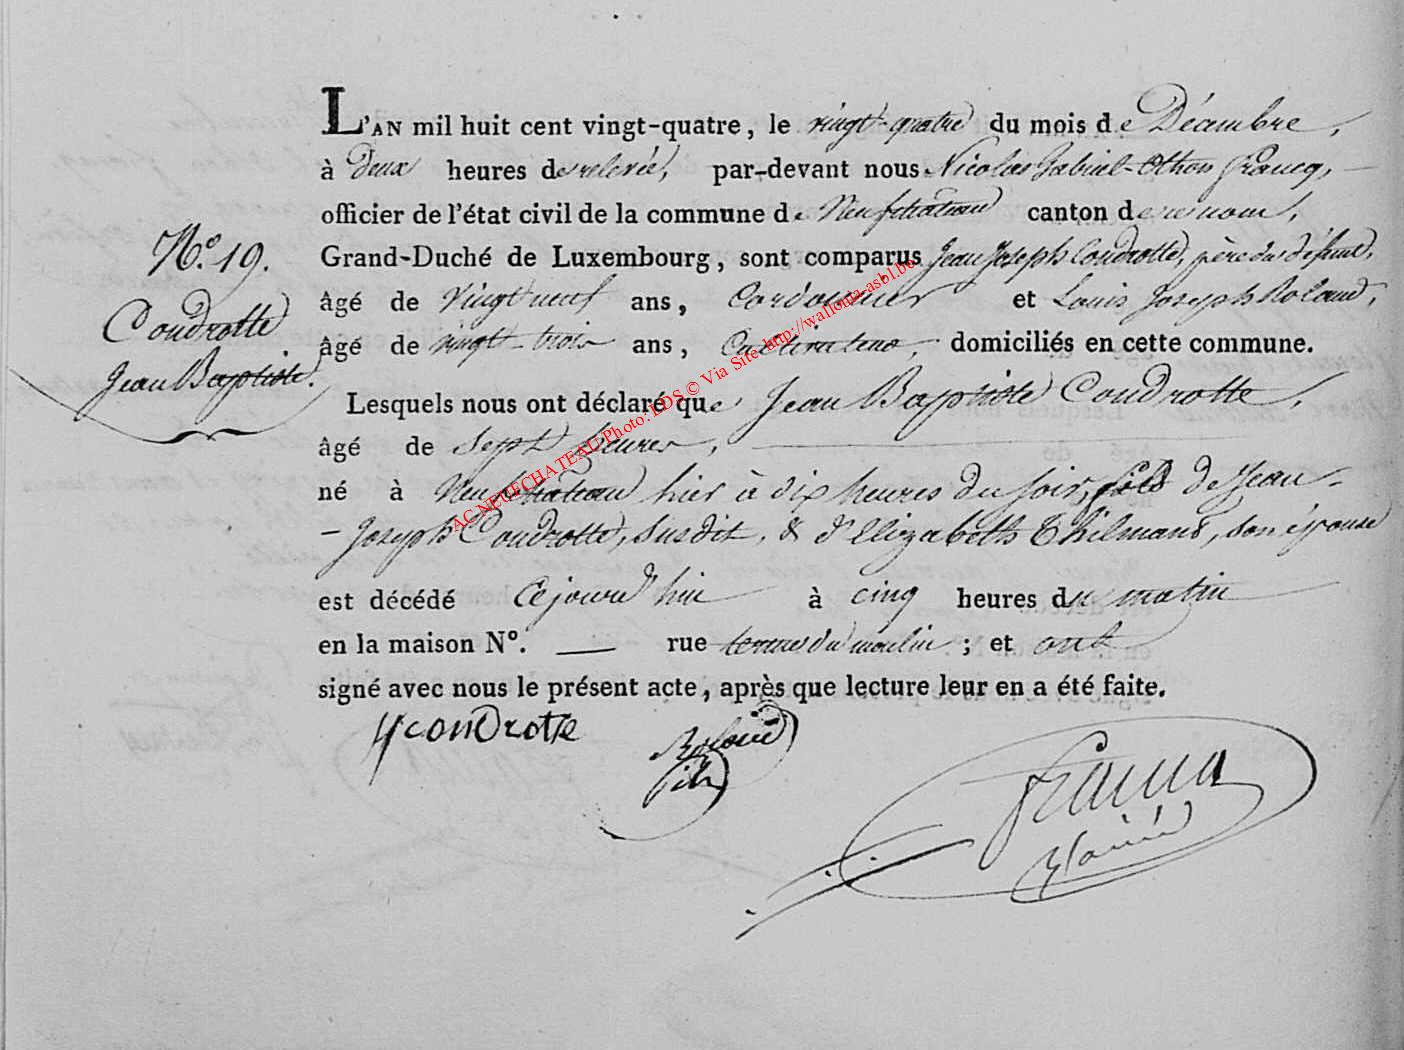 L'AN mil huit cent vingt-quatre, le vingt-quatre du mois de Décembre,
à Deux heures de relevée, par-devant nous Nicolas Gabriel-Othon Francq,
officier de l'état civil de la commune de Neufchateau canton de ce nom,
N.° 19.
Condrotte
Jean Baptiste.
Grand-Duché de Luxembourg, sont comparus Jean Joseph Condrotte, père du défunt,
âgé de Vingt neuf ans, Cordonnier et Louis Joseph Roland,
âgé de vingt-trois ans, Cultivateur, domiciliés en cette commune.
Lesquels nous ont déclaré que Jean Baptiste Condrotte,
âgé de Sept heures,
né à Neufchateau hier à dix heures du soir, fils de Jean-
-Joseph Condrotte, susdit, & d'Elizabeth Thilmans, son épouse
est décédé Cejourd'hui à cinq heures du matin
en la maison N°. — rue du moulin ; et ont
signé avec nous le présent acte, après que lecture leur en a été faite.
Condrotte
Roland
fils
Francq
l'ainé
AC NEUFCHATEAU Photo: LDS © Via Site http://wallonia-asbl.be